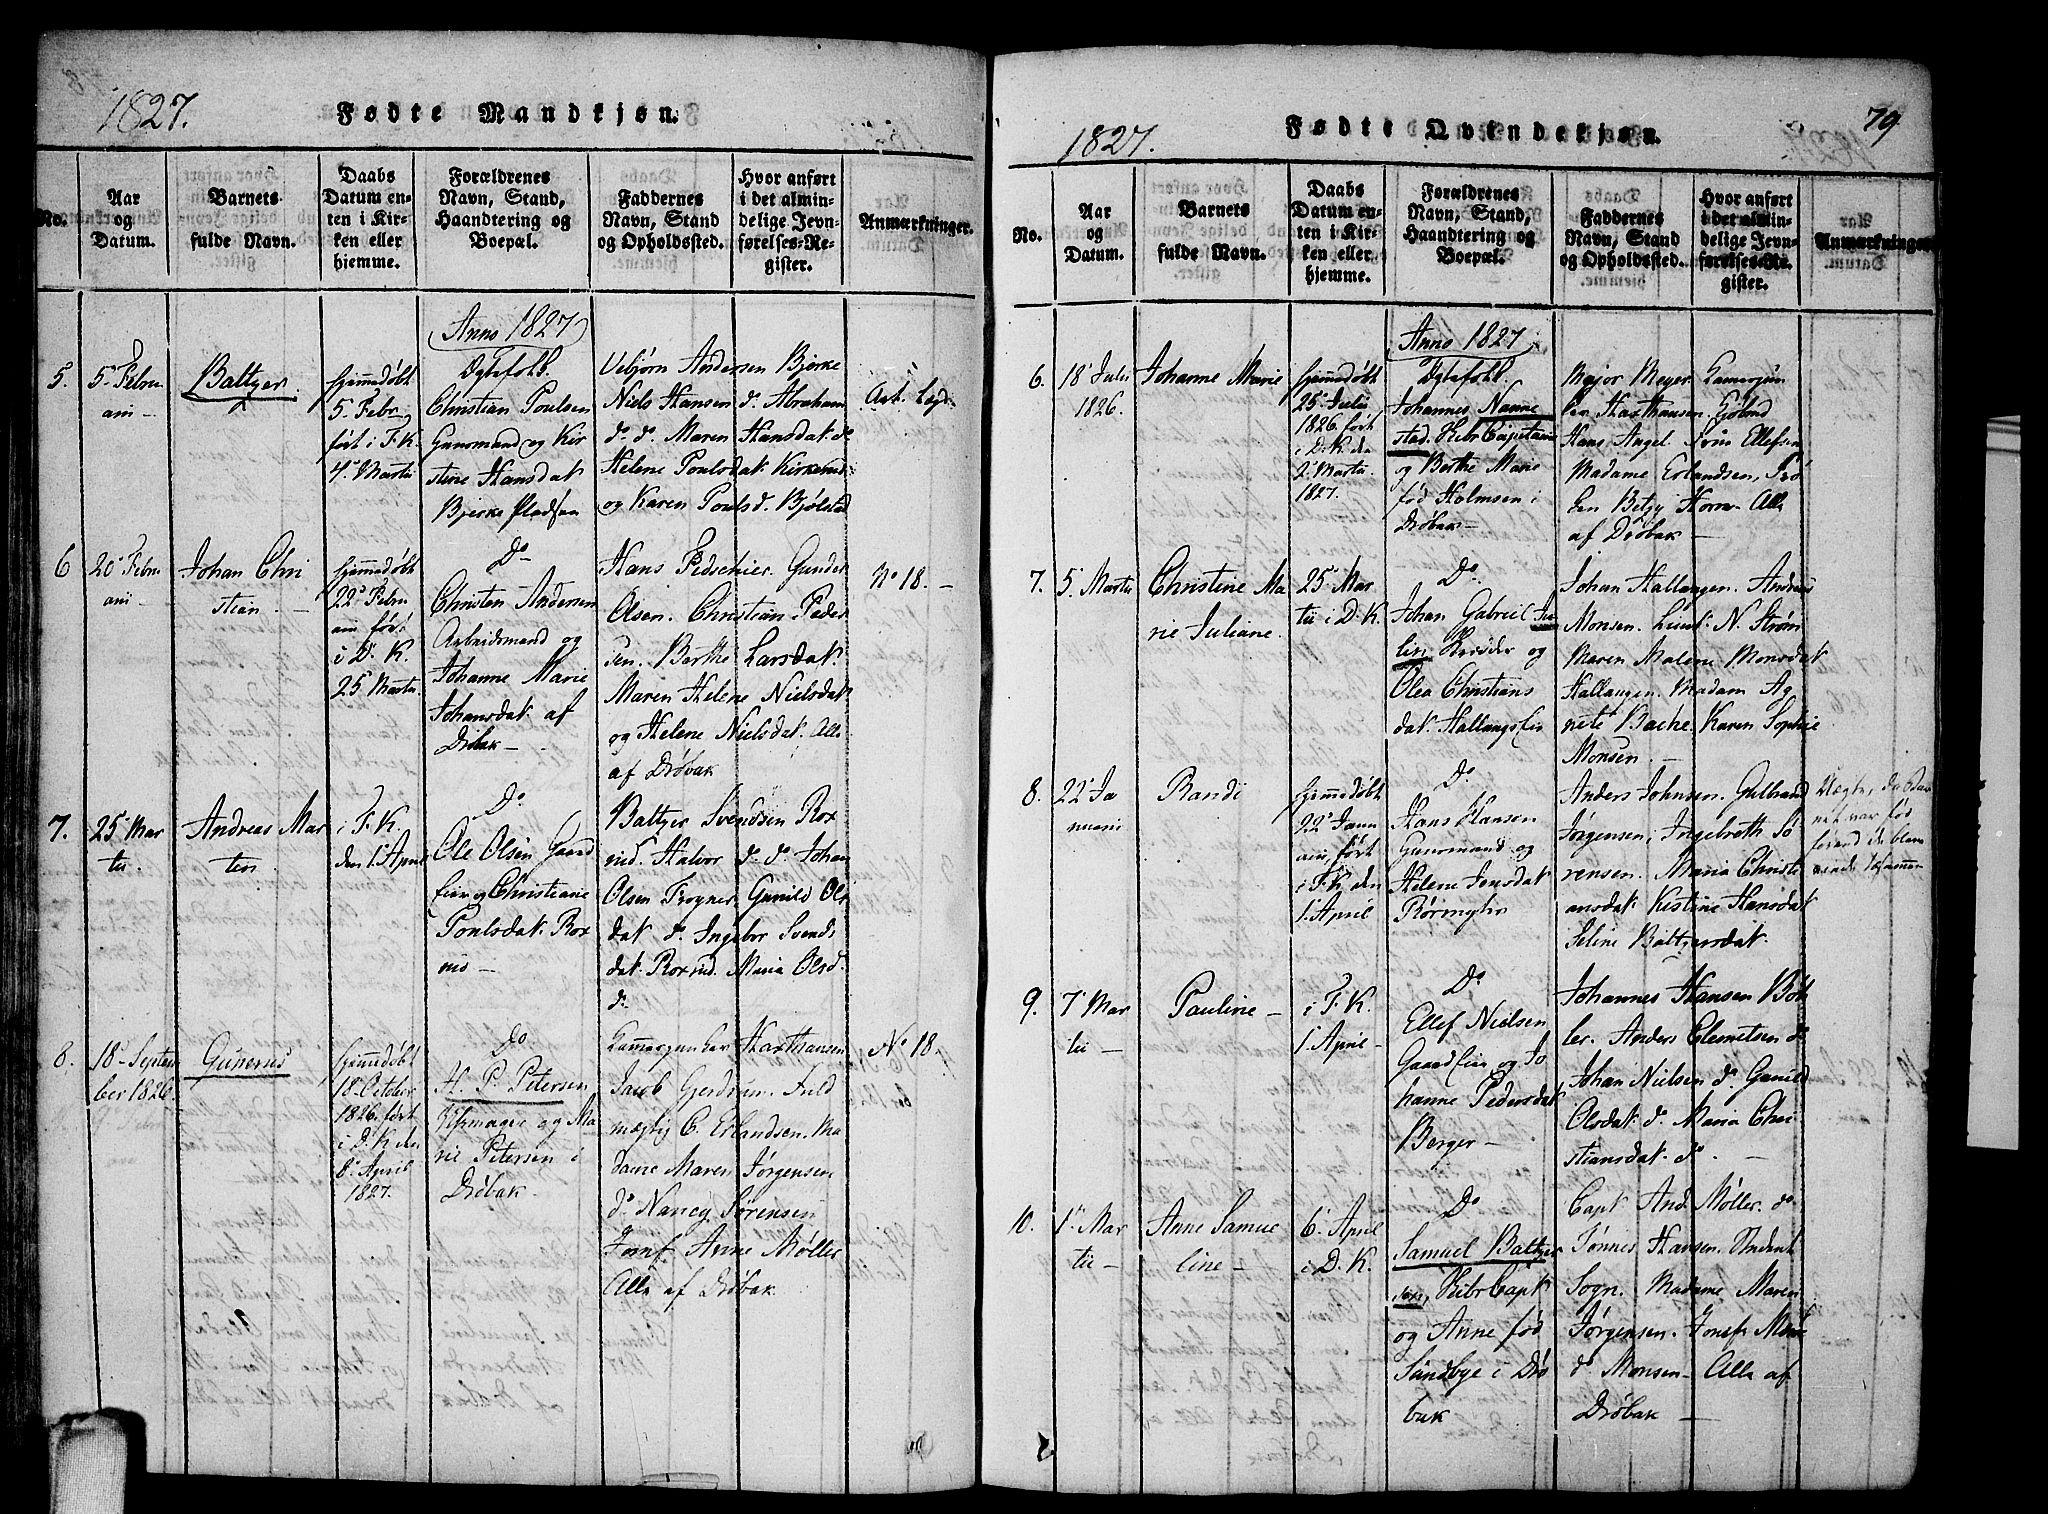 1827.
Fødte Mandkjøn.
No.
Aar
og
Datum.
Barnets
fulde Navn.
Daabs
Datum en-
ten i Kir-
ken eller
hjemme.
Forældrenes
Navn, Stand,
Haandtering og
Boepæl.
Faddernes
Navn, Stand
og Opholdssted.
Hvor anført
i det almin-
delige Jevn-
førelses-Re-
gister.
Anmærkninger.
5.
5 Febru
arii
Baltzer
hjemmedøbt
5 Febr
ført i F. K.
4 Martii
Anno 1827
Ægtefolk.
Christian Poulsen
Huusmand og Kir
stine Hansdat
Bjerke Pladsen
Vebjørn Andersen Bjerke
Niels Hansen do. Abraham
do. do. Maren Hansdat. do.
Helene Poulsdat. Kirkerud
og Karen Poulsd. Bjølstad
6
20 Febru
arii
Johan Chri
stian
hjemmedøbt
22 Febru
arii ført
i D. K.
25 Martii
Do
Christen Andersen
Arbeidsmand og
Johanne Marie
Johansdat. af
Drøbak
Hans Gunder
Olsen. Christian Peder
sen. Berthe Larsdat.
Maren Helene Nielsdat.
og Helene Nielsdat. Alle
af Drøbak
No 18.
7.
25 Mar
tii
Andreas Mar
ten
i F. K.
den 1 April
Do
Ole Olsen Gaard
feier og Christiane
Poulsdat. Rox
rud
Baltzer Svendsen Rox
rud. Halvor do. do. Johan
Olsen Frogner Gunild Ols
dat. do. Ingebor Svends
dat. Roxrud. Maria Olsd.
do.
8.
18 Septem
ber 1826
Gunerus
hjemmedøbt
18 October
1826. ført
i D. K den
8 April
1827.
Do
H. P. Petersen
og Ma
rie Petersen i
Drøbak
Kammerjunker Haxthausen
Jacob Gjerdrum. Fuld
mægtig C. Erlandsen. Ma
dame Maren Jørgensen
do. Nancy Sørensen
Jomf. Anne Møller
Alle af Drøbak
No 18.
79
1827.
Fødte Qvindekjøn.
No.
Aar
og
Datum.
Barnets
fulde Navn.
Daabs
Datum en-
ten i Kir-
ken eller
hjemme.
Forældrenes
Navn, Stand,
Haandtering og
Boepæl.
Faddernes
Navn, Stand
og Opholdssted.
Hvor anført
i det almin-
delige Jevn-
førelses-Re-
gister.
Anmærkninger
6.
18 Julii
1826.
Johanne Marie
hjemmedøbt
25 Julii
1826. ført
i D. K. den
2 Martii
1827.
Anno 1827
Ægtefolk.
Johannes Nanne
stad. Skibs Capitaine
og Berthe Marie
fød Holmsen i
Drøbak
Major Meyer. Kammerjun
ker Haxthausen.
Hans Angel. Ellefsen
Madame Erlandsen, Frø
ken Betzy Horn. Alle
af Drøbak
7.
5 Martii
Christine Ma
rie Juliane.
25 Mar
tii i D. K.
Do
Johan Gabriel Ju
lin og
Olea Christians
dat. Hallangs Eie
Johan Hallangen. Andreas
Monsen. N. Strøm
Maren Malene Monsdat
Hallangen. Madam Ag
nete Bache Karen Sophie
Monsen.
8.
22 Ja
nuarii
Randi
hjemmedøbt
22 Janu
arii, ført
i F. K. den
1 April
Do
Hans Hansen
Huusmand og
Helene Jensdat
Anders Johnsen. Gulbrand
Jørgensen, Ingebreth Sø
rensen. Maria Christi
ansdat. Kistine Hansdat
Seline Baltzersdat.
Uægte, da Bar
net var fød
førend de blev
9.
7 Mar
tii
Pauline
i F. K.
1 April
Do
Ellef Nielsen
Gaard Eier og Jo
hanne Pedersdat
Berger
Johannes Hansen Bøh
ler. Anders Clemetsen do.
Johan Nielsen do. Gunild
Olsdat. do. Maria Chri
stiansdat. do.
10.
1 Mar
tii
Anne Samue
line
6 April
i D. K.
Do
Samuel Baltzer
sen, Skibs Capt
og Anne fød
Sandbye i Drø
bak
Capt And. Møller. do.
Tønnes Hansen. Student
Sogn. Madame Maren
Jørgensen. Jomfr.
do Monsen Alle af
Drøbak